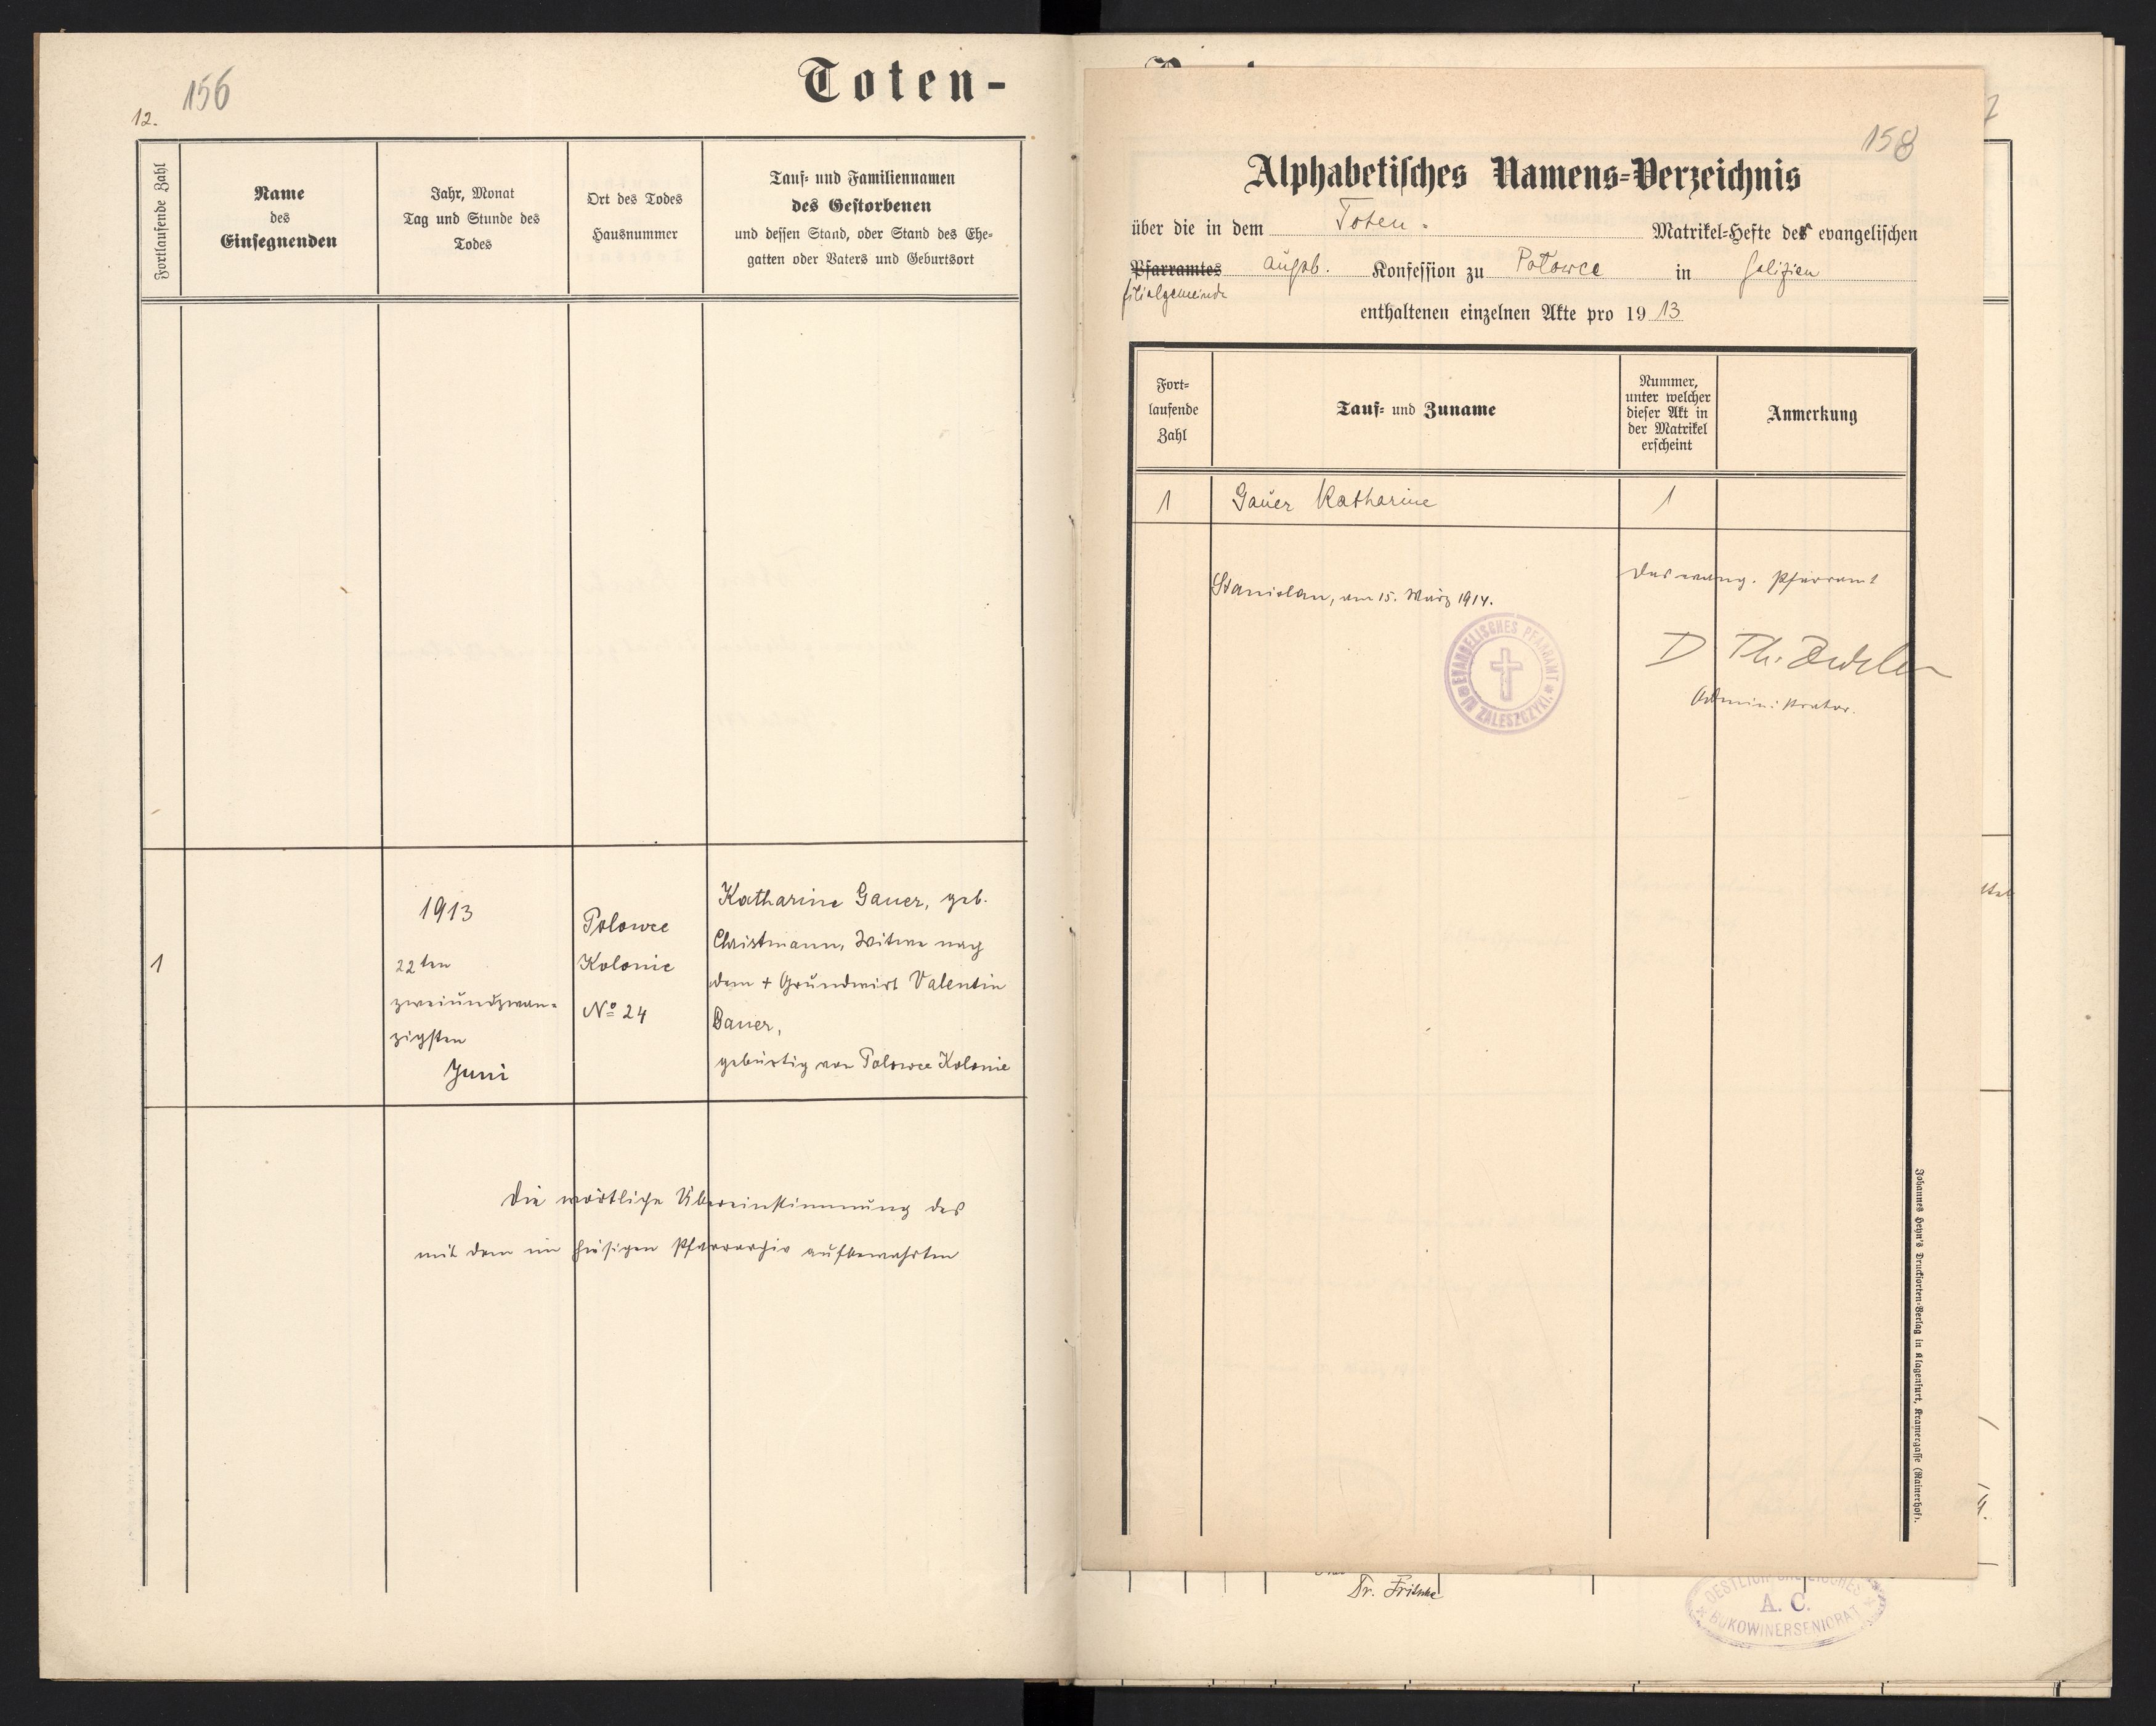 156
12.
Toten-
Fortlaufende Zahl
Name
des
Einsegnenden
Jahr, Monat
Tag und Stunde des
Todes
Ort des Todes
Hausnummer
Tauf- und Familiennamen
des Gestorbenen
und dessen Stand, oder Stand des Ehe-
gatten oder Vaters und Geburtsort
1
1913
22ten
zweiundzwan-
zigsten
Juni
Polowce
Kolonie
No 24
Katharine Gauer, geb.
Christmann, Witwe nach
dem + Grundwirt Valentin
Bauer,
gebürtig von Polowce Kolonie
Die wörtliche Übereinstimmung des
mit dem im hiesigen Pfarrarchiv aufbewahrten
158
Alphabetisches Namens-Verzeichnis
über die in dem Toten- Matrikel-Hefte des evangelischen
Pfarramtes augsb. Konfession zu Polowce in Galizien
filialgemeinde
enthaltenen einzelnen Akte pro 1913
Fort-
laufende
Zahl
Tauf- und Zuname
Nummer,
unter welcher
dieser Akt in
der Matrikel
erscheint
Anmerkung
1 Gauer Katharine 1
Das evang. Pfarramt
Stanislau, am 15. März 1914.
EVANGELISCHES PFARRAMT
IN ZALESZCZYKI.
D Th. Zöckler
Administrator.
Johannes Heyn's Drucksorten-Verlag in Klagenfurt, Kramergasse (Rainerhof).
Dr. Fritsche
A. C.
BUKOWINERSENIORAT